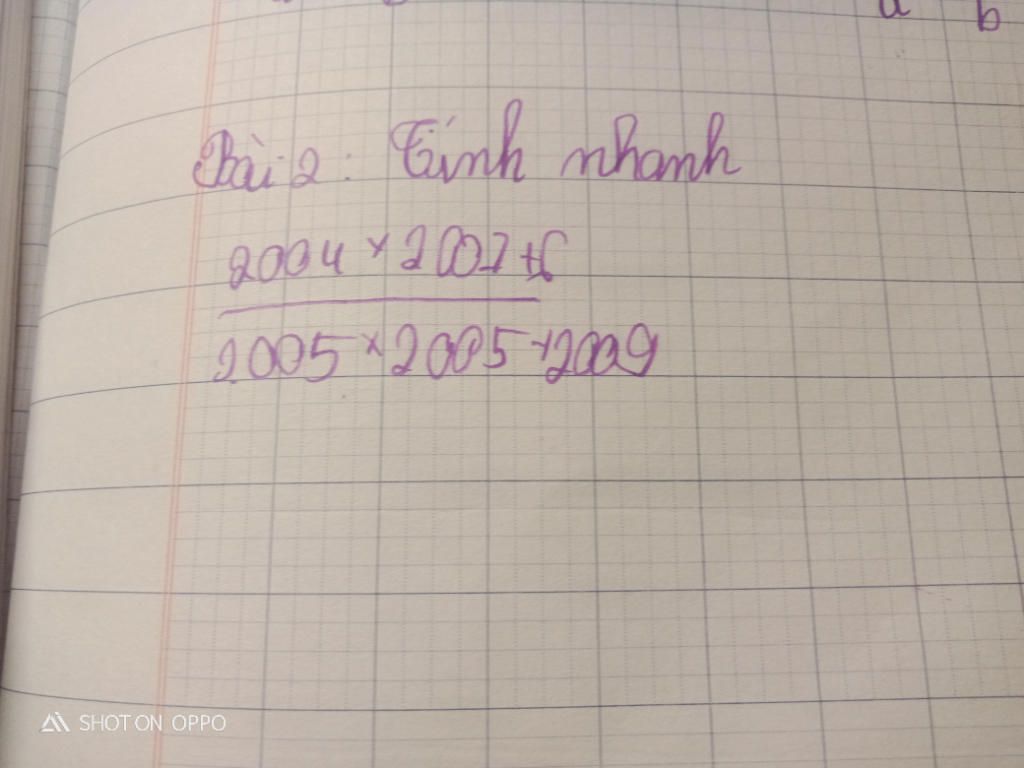 a b
Bài 2: Tính nhanh
2004 × 2007 + 6
2005 × 2005 + 2009
SHOT ON OPPO